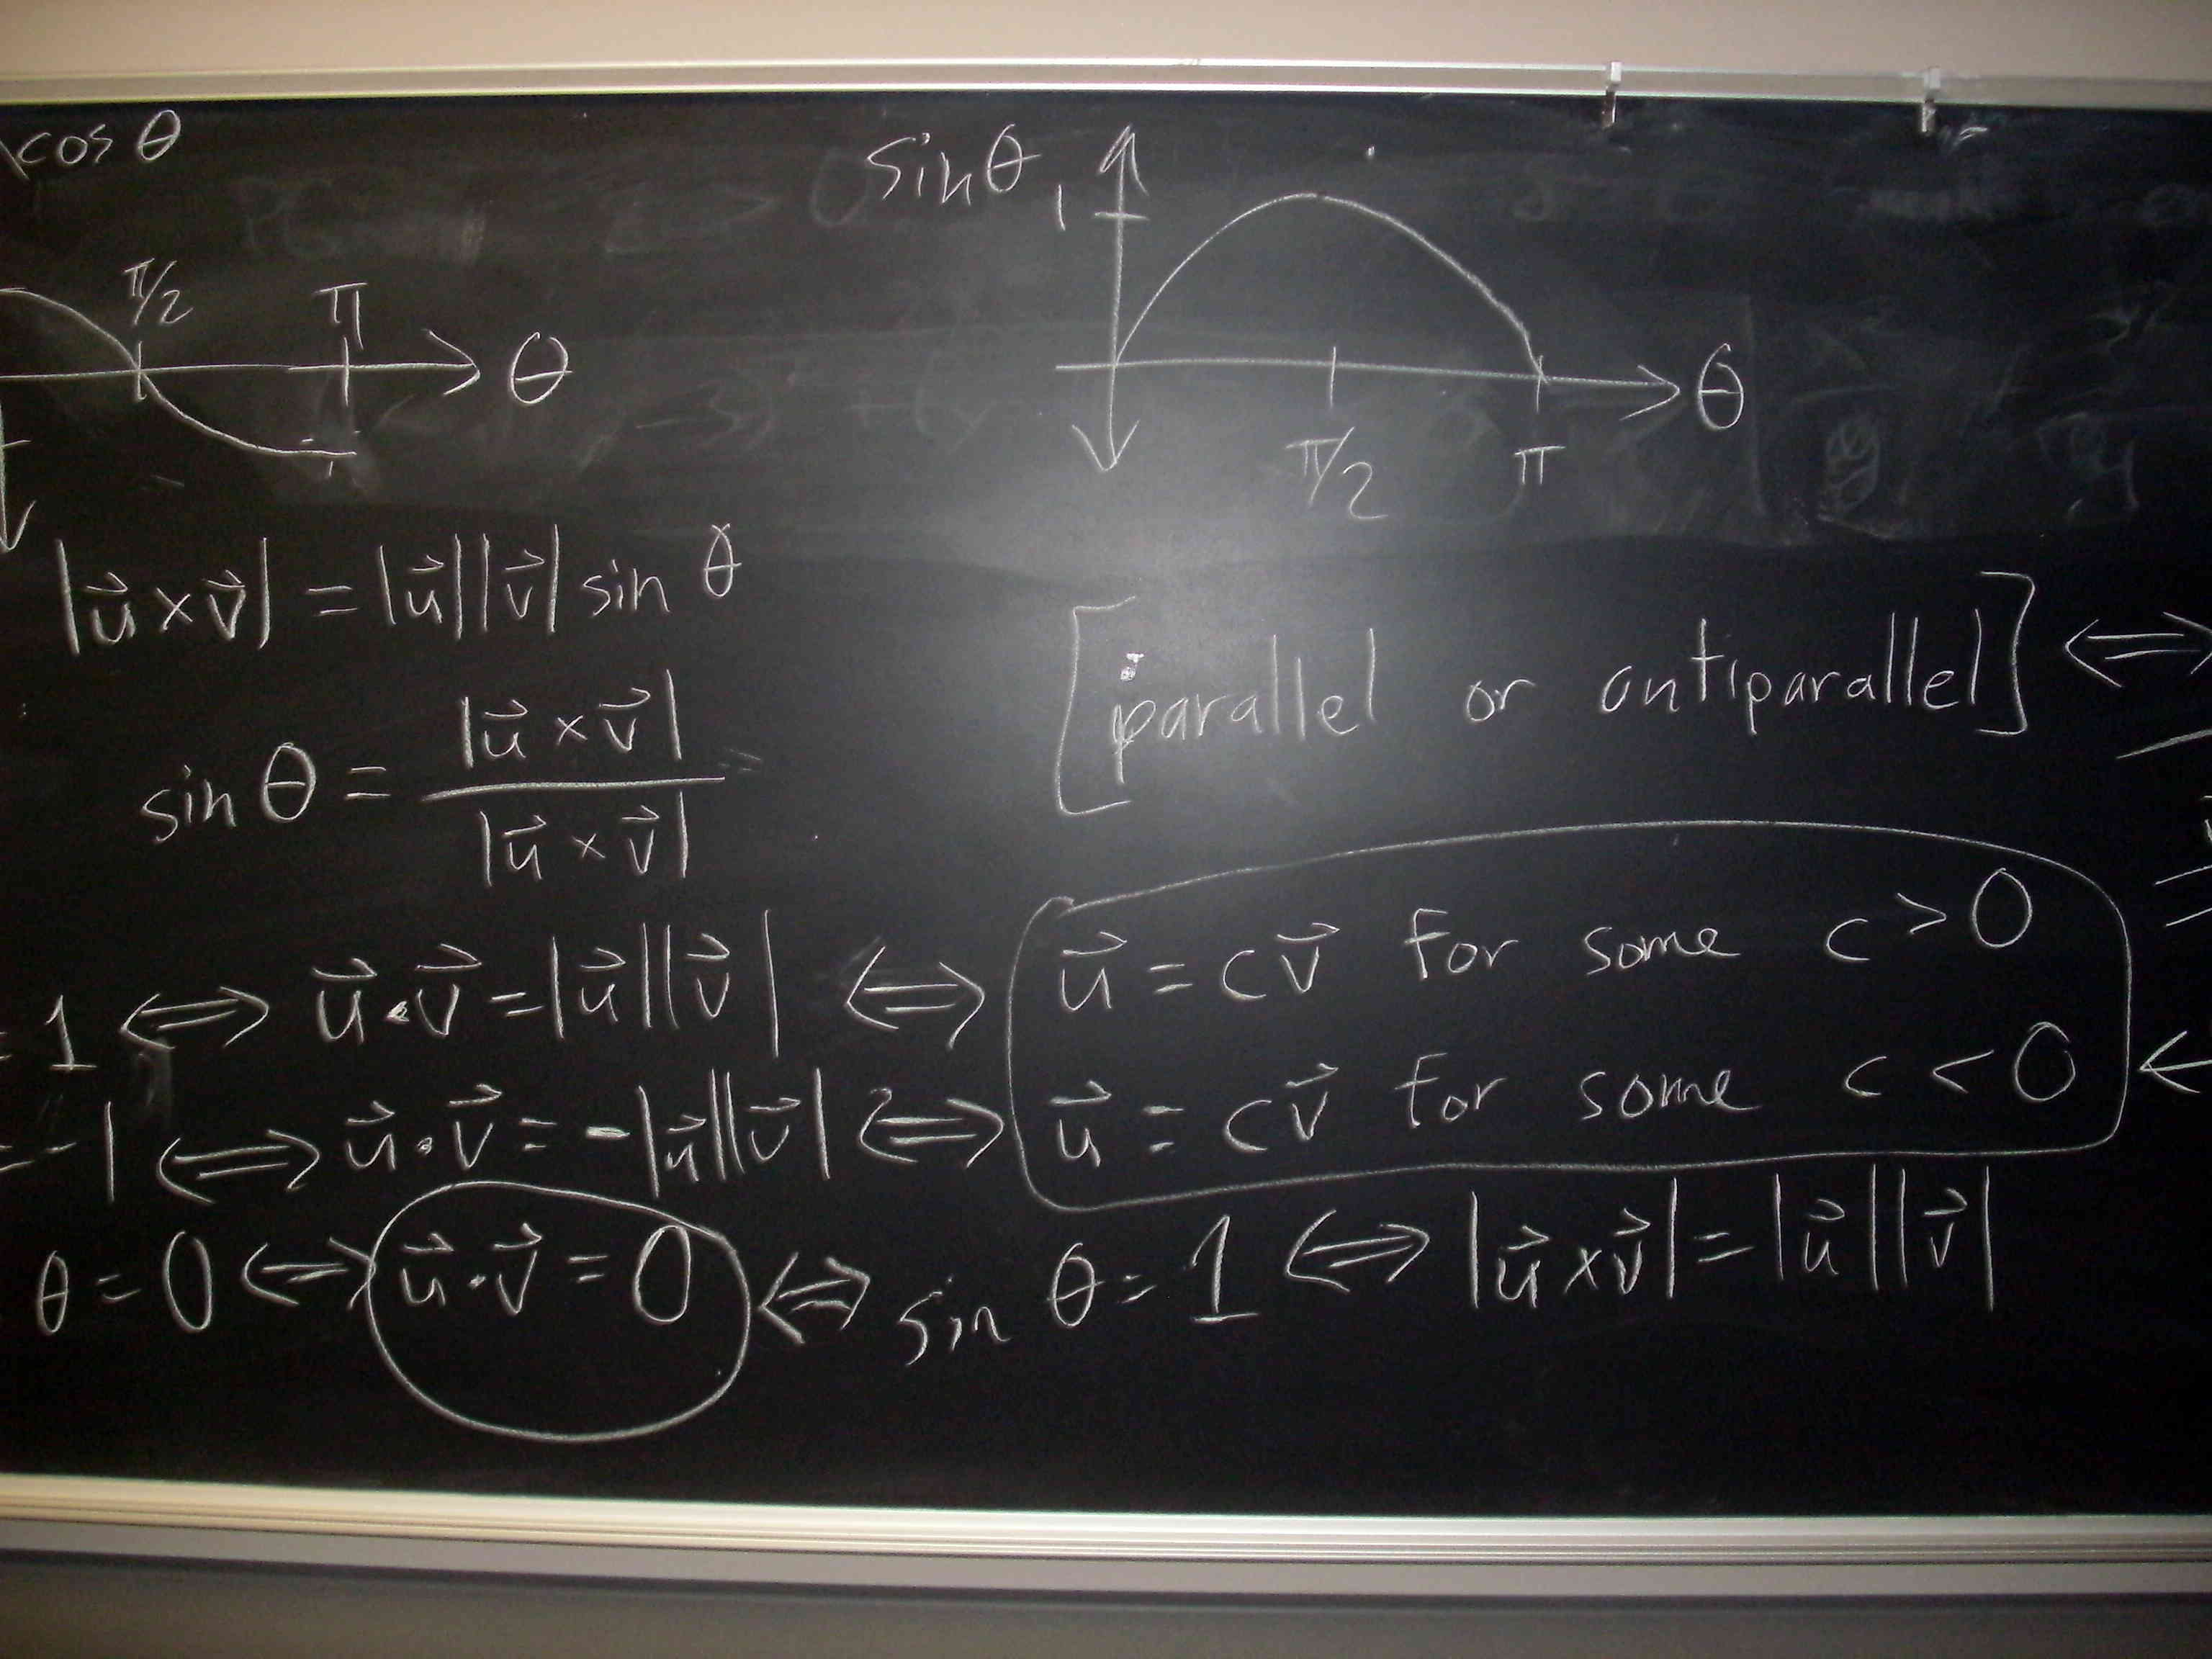 cos θ
π/2 π
θ
sin θ 1
θ
π/2 π
|u⃗ × v⃗| = |u⃗||v⃗| sin θ
sin θ = |u⃗ × v⃗| / |u⃗ × v⃗|
[parallel or antiparallel] ⟺
= 1 ⟺ u⃗ · v⃗ = |u⃗||v⃗| ⟺ u⃗ = cv⃗ for some c > 0
= -1 ⟺ u⃗ · v⃗ = -|u⃗||v⃗| ⟺ u⃗ = cv⃗ for some c < 0
θ = 0 ⟺ u⃗ · v⃗ = 0 ⟺ sin θ = 1 ⟺ |u⃗ × v⃗| = |u⃗||v⃗|